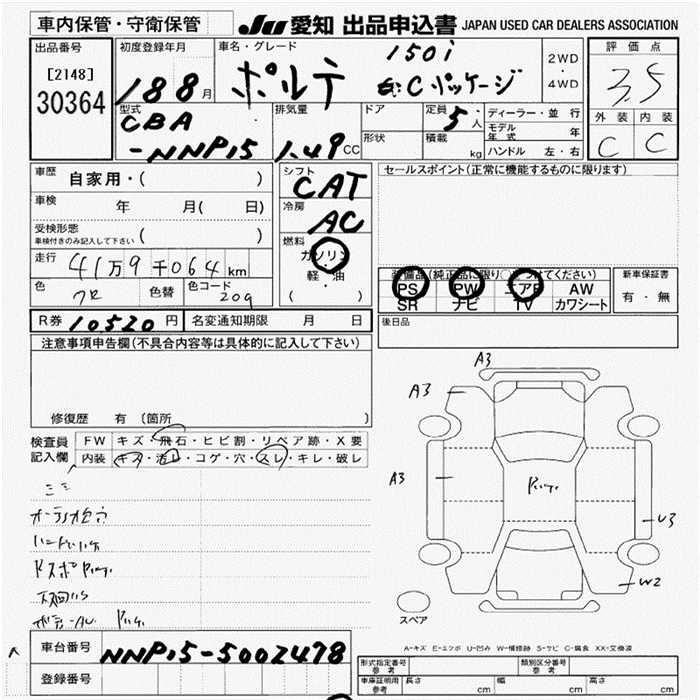 車内保管・守衛保管
JU 愛知 出品申込書 JAPAN USED CAR DEALERS ASSOCIATION
出品番号
[2148]
30364
初度登録年月
188月
車名・グレード
ポルテ
150i
Cパッケージ
2WD
・
4WD
評価点
3.5
外装 内装
C C
型式
CBA
-NNP15
排気量
1.49CC
ドア
形状
定員
5人
積載
kg
ディーラー・並行
モデル年式 年
ハンドル 左・右
車歴 自家用・( )
車検 年 月( 日)
受検形態
車検付きのみ記入して下さい ( )
走行 41万9千064km
色 色替 色コード 209
シフト
CAT
冷房
AC
燃料
ガソリン
・
軽・油
( )
セールスポイント(正常に機能するものに限ります)
装備品(純正品に限り○をつけてください)
PS PW エアB AW
SR ナビ TV カワシート
新車保証書
有・無
R券 10,520円 名変通知期限 月 日
後日品
注意事項申告欄(不具合内容等は具体的に記入して下さい)
修復歴 有 (箇所 )
検査員記入欄
FW キズ・飛石・ヒビ割・リペア跡・X要
内装 キズ・汚レ・コゲ・穴・スレ・キレ・破レ
A3
A3
A3
U3
W2
スペア
A-キズ E-エクボ U-凹み W-補修跡 S-サビ C-腐食 XX-交換済
車台番号 NNP15-5002478
登録番号
形式指定番号 参考
類別区分番号 参考
車庫証明用 参考 長さ cm 幅 cm 高さ cm